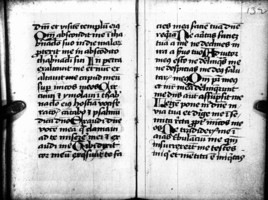 Dni et visite templum eius
Qm abscondit me i tha
bnaclo suo in die malor
ptexit me in abscondito
thabnacli sui In petra
exaltavit me et nuc ex
altavit caput meu
sup inicos meos Cir
cuivi et ymolavi i thab
naclo eius hostia vocife
cantabo et psalmu
dica dno Exaudi dne
voce mea q clamavi
ad te misere mei et ex
audi me Tibi dixit
cor meu exquisivit te fa
cies mea facie tua dne
requira Ne avtas facie
tua a me ne declines in
ira a suo tuo Adiutor
meus esto ne delinqs me
ne despicias me deus salu
taris meus Qm pr meus
et mr mea delinquert
me dns aut assupsit me
Lege pone m dne in
via tua et dirige me i se
mita recta ppt inimicos me
os Ne tradideris me i
aias tribulantiu qm
insurrexert in me testes
iniq et metita e iniqtas